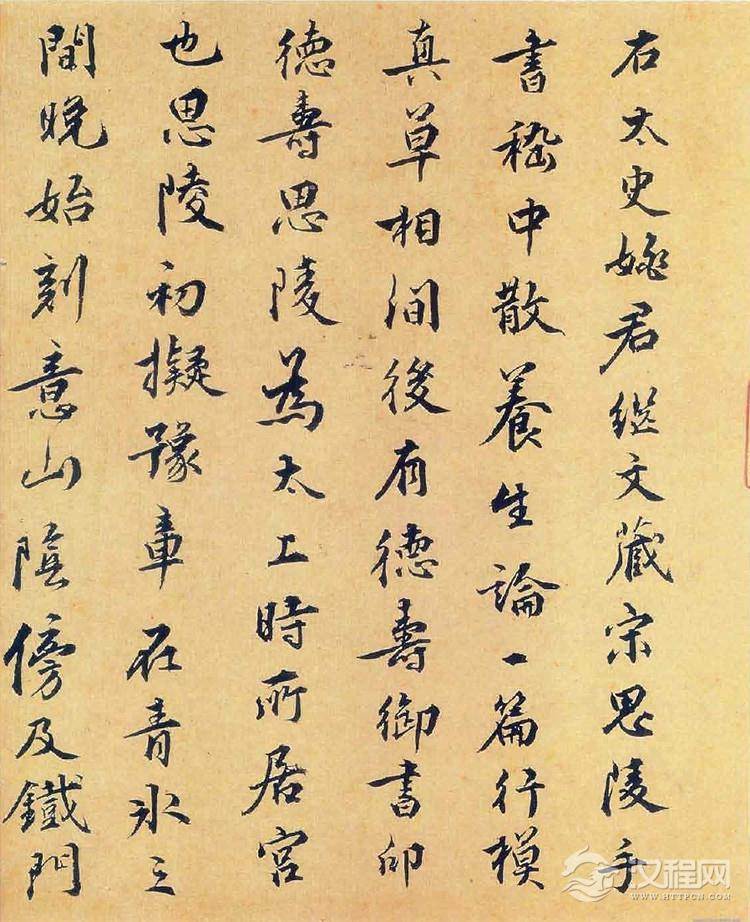 右太史姚君继文藏宋思陵手
書嵇中散養生論一篇行模
真草相间後有德壽御書印
德壽思陵為太上時所居宮
也思陵初擬豫章在青氷之
間晚始刻意山陰傍及鐵門
汉程网
WWW.HTTPCN.COM